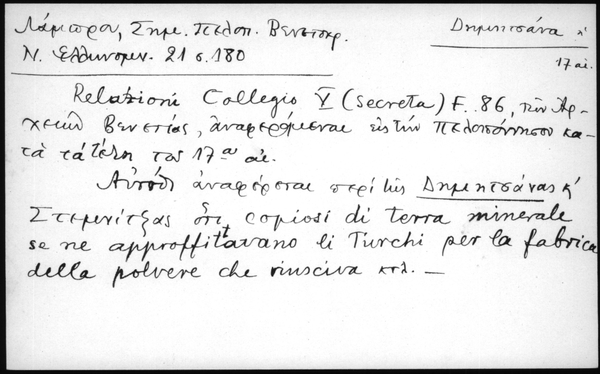 Λάμπρου, Σημ. Πελοπ. Βενετοκρ.
Δημητσάνα κ'
Ν. Ελληνομν. 21 σ. 180
17 αἰ.
Relazioni Collegio V (Secreta) F. 86, τῶν Ἀρ-
χείων Βενετίας, ἀναφερόμεναι εἰς τὴν Πελοπόννησον κα-
τὰ τὰ τέλη τοῦ 17ου αἰ.
Αὐτόθι ἀναφέρεται περὶ τῆς Δημητσάνας κ'
Στεμνίτζας ὅτι copiosi di terra minerale
se ne approffittavano li Turchi per la fabrica
della polvere che riusciva κτλ. —